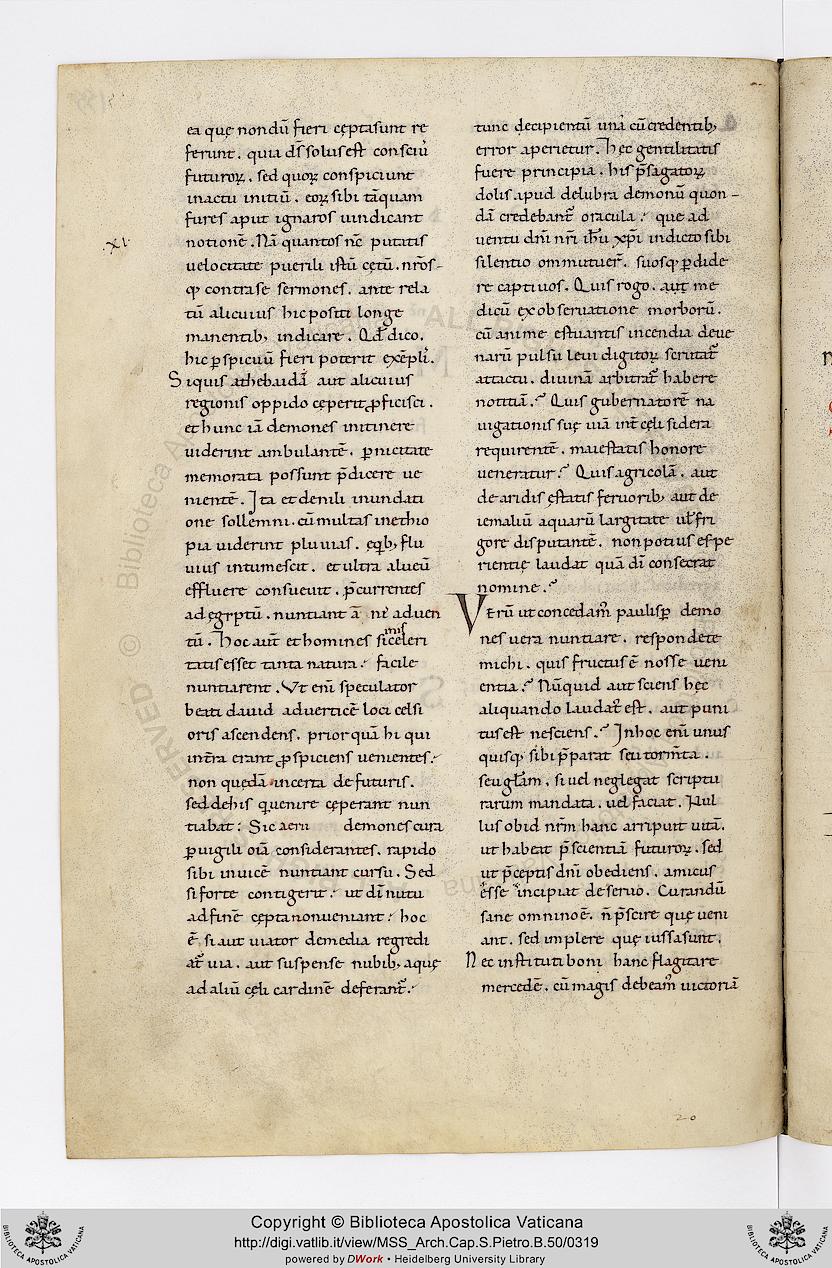 ea quę nondū fieri cęptasunt re
ferunt. quia dſ̄ soluſeſt conſciuˀ
futuroꝝ. sed quoꝝ conſpiciunt
inactu initiū. eoꝝ sibi tāquam
fureſ aput ignaroſ uindicant
notionē. Nā quantoſ nc̄ putatiſ
.XI.
uelocitate puerili iſtū cętū. nr̄oſ-
qꝫ contrase ſermoneſ. ante rela
tū alicuiuſ hic poſiti longe
manentibꝫ indicare. Qd̄ dico.
hic ꝑſpicuū fieri poterit exēpli.
Siquiſ athebaidā aut alicuiuſ
regioniſ oppido cęperit ꝓficiſci.
et hunc iā demoneſ initinere
uiderint ambulantē. ꝑnicitate
memorata poſſunt p̄dicere ue
nientē. Ita et denili inundati
one sollemni. cū multaſ inethio
pia uiderint pluuiaſ. eqꝫbꝫ flu
uiuſ intumeſcit. et ultra alueū
effluere conſueuit. p̄currenteſ
ad ęgyptū. nuntiant ā nr̄ aduen
tū. Hoc aūt et homineſ siceleri
miſ
tatiſ eſſet tanta natura: facile
nuntiarent. Vt enī ſpeculator
beati dauid aduerticē loci celſi
oriſ aſcendenſ. prior quā hi qui
infra erant ꝓſpicienſ uenienteſ.
non quedā incerta de futuriſ.
sed dehiſ q̄ uenire cęperant nun
tiabat: Sic aerii demoneſ cura
ꝑuigili oīa conſideranteſ. rapido
sibi inuicē nuntiant curſu. Sed
si forte contigerit: ut dī nutu
adfinē cępta non ueniant: hoc
ē. si aut uiator demedia regredi
at̄ uia. aut suſpenſe nubibꝫ aquę
ad aliū cęli cardinē deferant̄:
tunc decipientū unā cū credentibꝫ
error aperietur. Hęc gentilitatiſ
fuere principia. hiſ p̄ſagatoꝝ
doliſ apud delubra demonū quon-
dā credebant̄ oracula: que ad
uentu dn̄i nr̄i ih̄u xp̄i indicto sibi
silentio ommutuer̄. suoſqꝫ ꝑdide
re captiuoſ. Quiſ rogo. aut me
dicū ex obſeruatione morborū.
cū anime eſtuantiſ incendia deue
narū pulſu leui digitoꝝ scrutat̄
attactu. diuinā arbitrat̄ habere
notitiā? Quiſ gubernatorē na
uigationiſ suę uiā int̄ cęli sidera
requirentē. maieſtatiſ honore
ueneratur? Quiſ agricolā. aut
de aridiſ ęſtatiſ feruoribꝫ aut de
iemaliū aquarū largitate ut̄ fri
gore diſputantē. non potiuſ eſpe
rientię laudat quā dī conſecrat
nomine.
Verū ut concedam̄ pauliſꝑ demo
neſ uera nuntiare. reſpondete
michi. quiſ fructuſ ē noſſe ueni
entia? Nūquid aut scienſ hęc
aliquando laudatꝰ eſt. aut puni
tuſ eſt neſcienſ? Inhoc enī unuſ
quiſqꝫ sibi p̄parat seu torm̄ta.
seu gl̄am. si uel neglegat scriptu
rarum mandata. uel faciat. Nul
luſ obid nr̄m hanc arripuit uitā.
ut habeat p̄scientiā futuroꝝ. sed
ut p̄ceptiſ dn̄i obedienſ. amicuſ
eſſe incipiat de seruo. Curandū
sane omnino ē. n̄ p̄scire quę ueni
ant. sed implere quę iuſſa sunt.
Nec inſtituti boni hanc flagitare
mercedē. cū magiſ debeam̄ uictoriā
20
Copyright © Biblioteca Apostolica Vaticana
http://digi.vatlib.it/view/MSS_Arch.Cap.S.Pietro.B.50/0319
powered by DWork • Heidelberg University Library